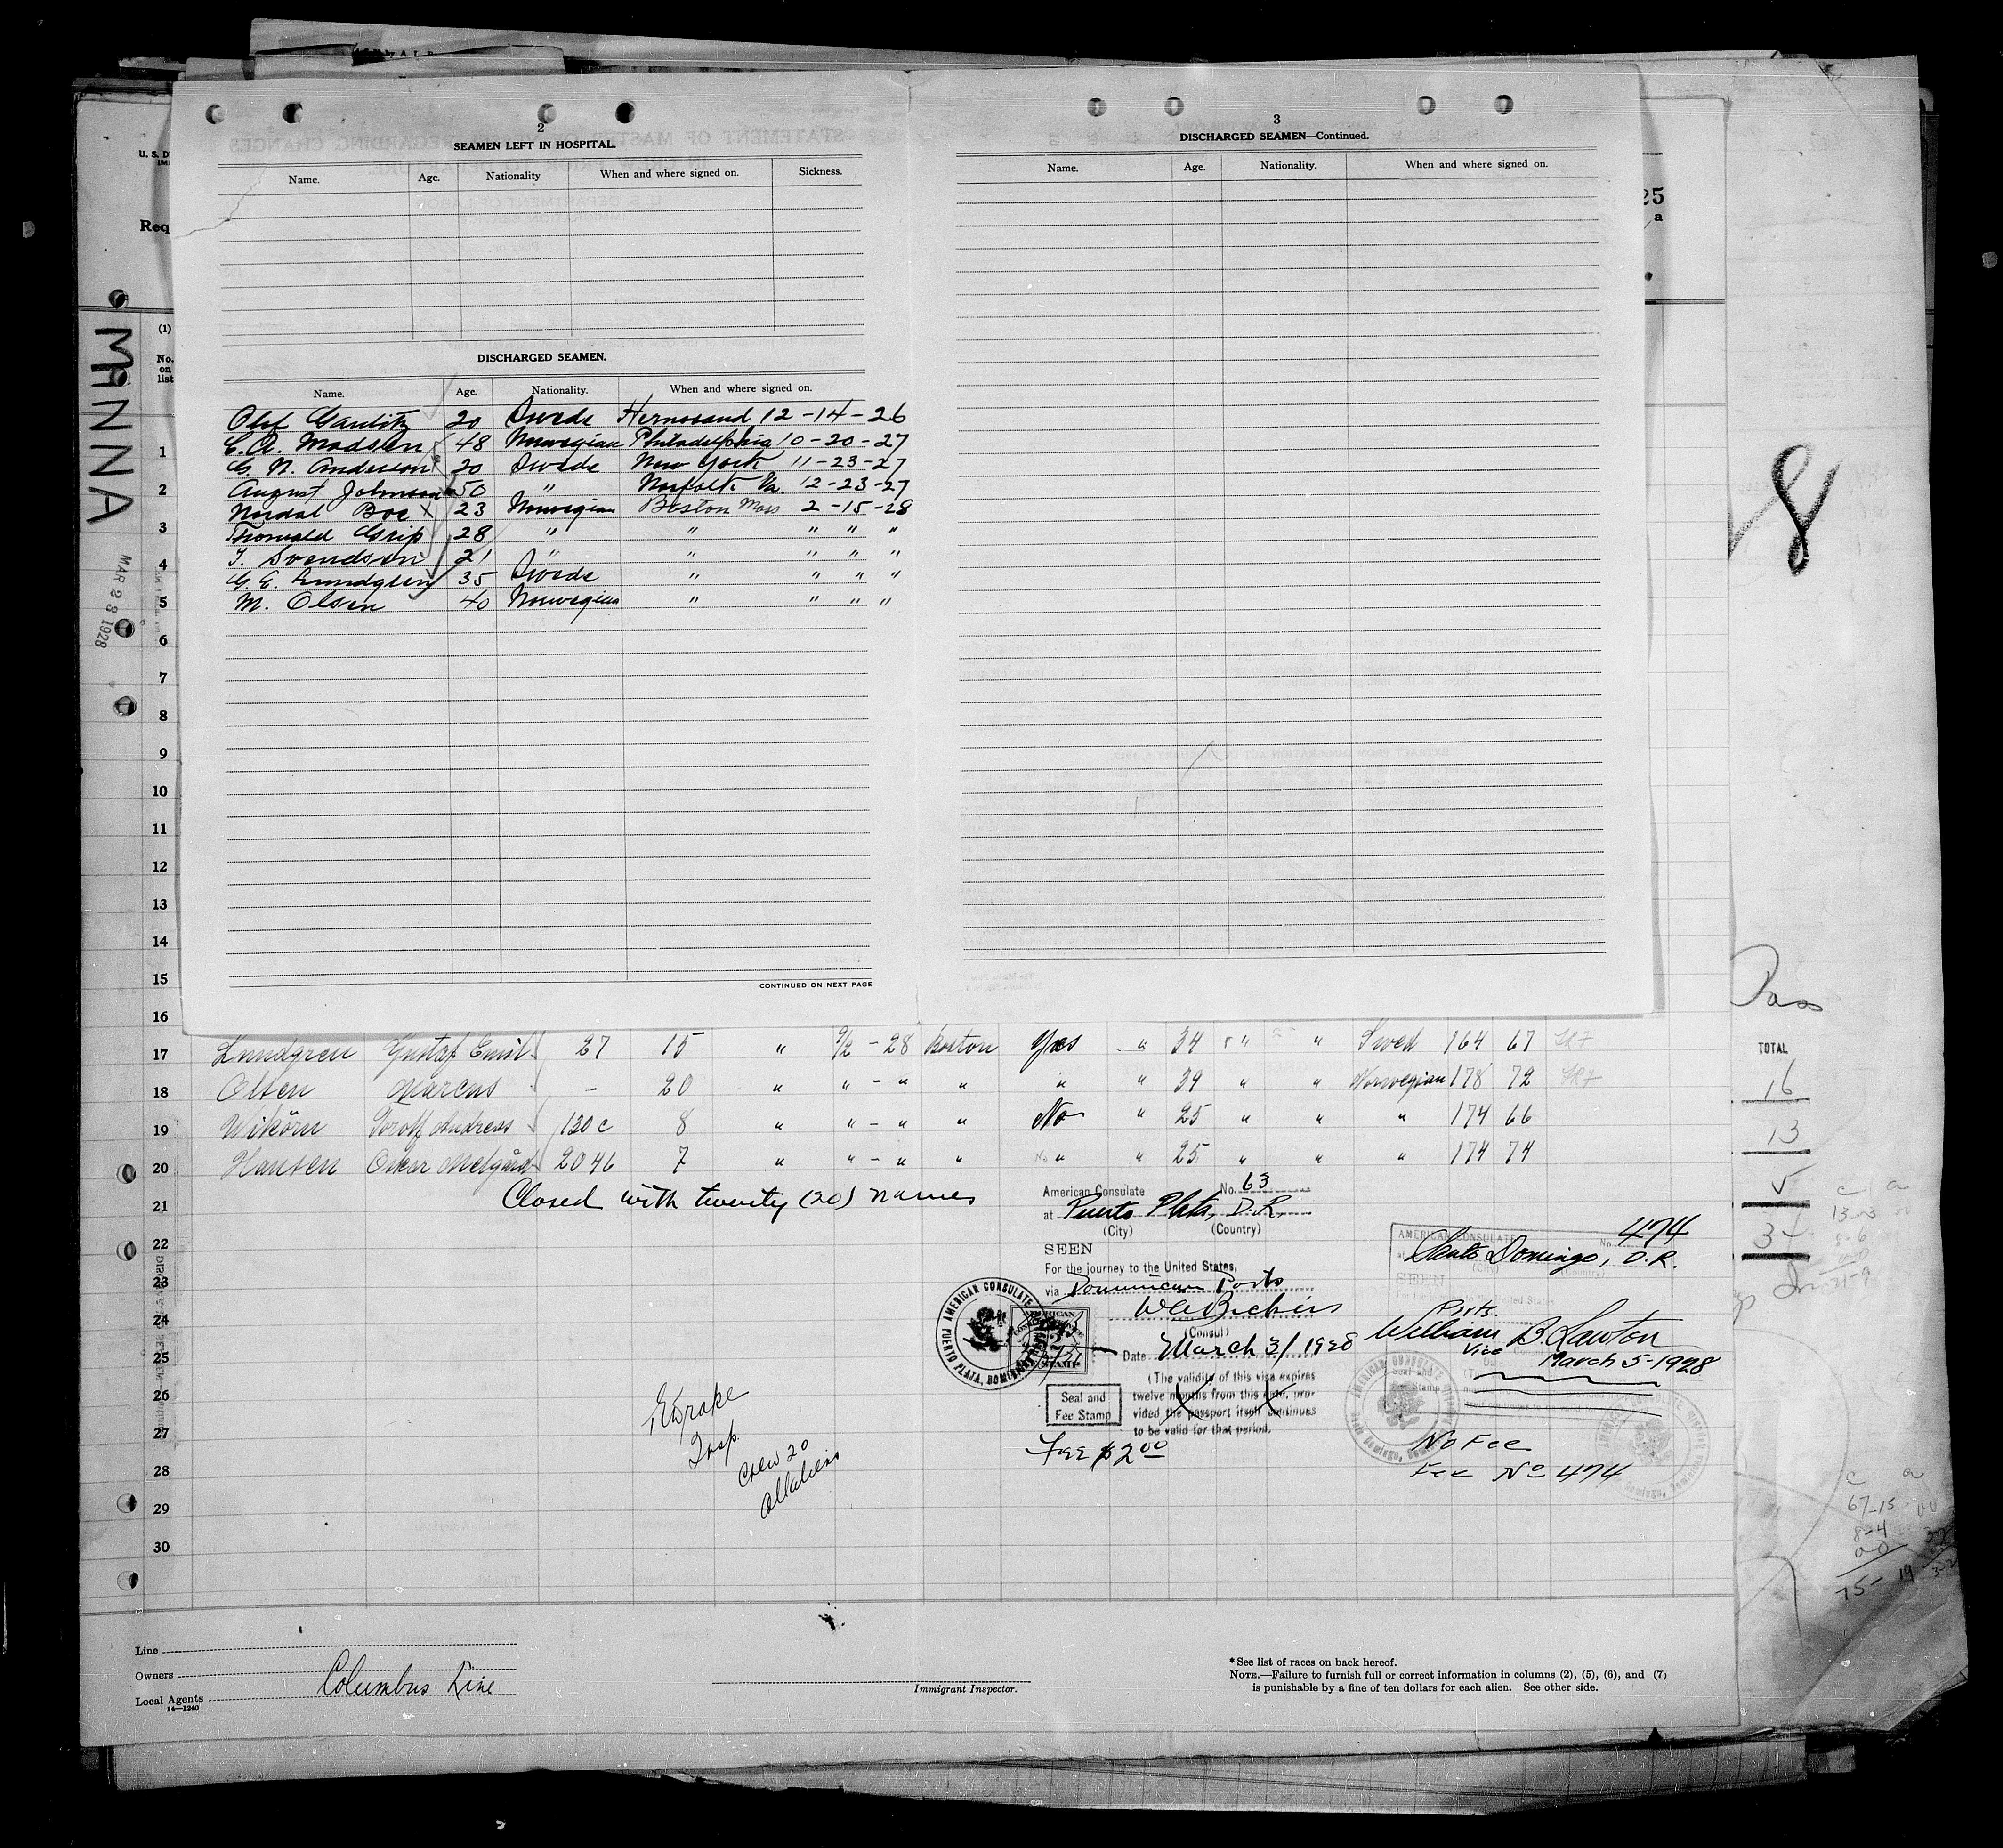 2
SEAMEN LEFT IN HOSPITAL.
Name. Age. Nationality When and where signed on. Sickness.
DISCHARGED SEAMEN.
Name. Age. Nationality. When and where signed on.
Olof 20 Swede Hernosand 12-14-26
C.A. Madsen 48 Norwegian Philadelphia 10-20-27
G. N. Anderson 20 Swede New York 11-23-27
August Johnson 50 " Norfolk Va. 12-23-27
Nordal Boe X 23 Norwegian Boston Mass 2-15-28
Thorwald Grip 28 " " " " "
T. Svendsen 21 " " " " "
G. E. Lundgren 35 Swede " " " "
M. Olsen 40 Norwegian " " " "
CONTINUED ON NEXT PAGE
3
DISCHARGED SEAMEN—Continued.
Name. Age. Nationality. When and where signed on.
U. S. D
IM
Req
25
a
MINNA
MAR 23 1928
(1)
No.
on
list
1
2
3
4
5
6
7
8
9
10
11
12
13
14
15
16
17 Lundgren Gustaf Emil 27 15 " 9/2 - 28 Boston Yes " 34 " " Swed 164 67
18 Olsen Marcus - 20 " " - " " " " 39 " " Norwegian 178 72
19 Wikörn Torolf Andreas 130c 8 " " - " " No " 25 " " " 174 66
20 Hansen Oskar Melgård 2046 7 " " - " " " " 25 " " " 174 74
21 Closed with twenty (20) names
22
23
24
25
26
27
28
29
30
American Consulate No. 63
at Puerto Plata, D.R.
(City) (Country)
SEEN
For the journey to the United States,
via Dominican Ports
W A Bickers
(Consul)
Date March 3/1928
(The validity of this visa expires
twelve months from this date, pro-
vided the passport itself continues
to be valid for that period.
Seal and
Fee Stamp
Fee $2.00
AMERICAN CONSULATE
PUERTO PLATA, DOMINICAN
AMERICAN CONSULATE No. 474
Santo Domingo, D.R.
SEEN
Ports.
William B. Lawton
Vice
March 5-1928
No Fee
Fee No 474
E Drake
Insp.
Crew 20
all aliens
8
Pass
TOTAL
16
13
Line
Owners
Local Agents
14—1240
Columbus Line
Immigrant Inspector.
*See list of races on back hereof.
NOTE.—Failure to furnish full or correct information in columns (2), (5), (6), and (7)
is punishable by a fine of ten dollars for each alien. See other side.
67-15
8-4
00
75-19